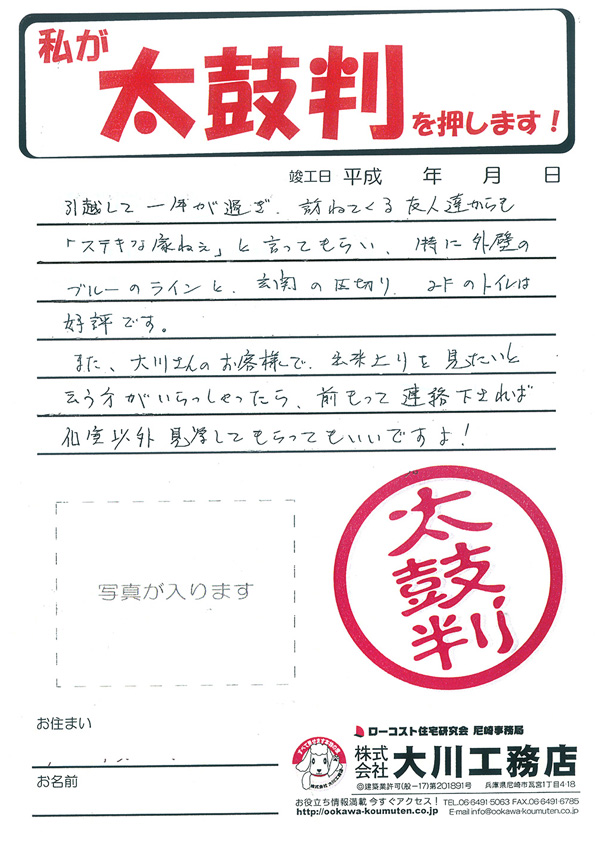 私が
太鼓判を押します!
竣工日 平成 年 月 日
引越して一年が過ぎ、訪ねてくる友人達からも
「ステキな家ねぇ」と言ってもらい、特に外壁の
ブルーのラインと、玄関の区切り、2Fのトイレは
好評です。
また、大川さんのお客様で、出来上りを見たいと
云う方がいらっしゃったら、前もって連絡下されば
以外 見学してもらってもいいですよ!
写真が入ります
太鼓判
お住まい
お名前
ローコスト住宅研究会 尼崎事務局
株式会社 大川工務店
◎建築業許可(般-17)第201891号 兵庫県尼崎市瓦宮1丁目4-18
お役立ち情報満載 今すぐアクセス! TEL.06-6491-5063 FAX.06-6491-6785
http://ookawa-koumuten.co.jp E-mail info@ookawa-koumuten.co.jp